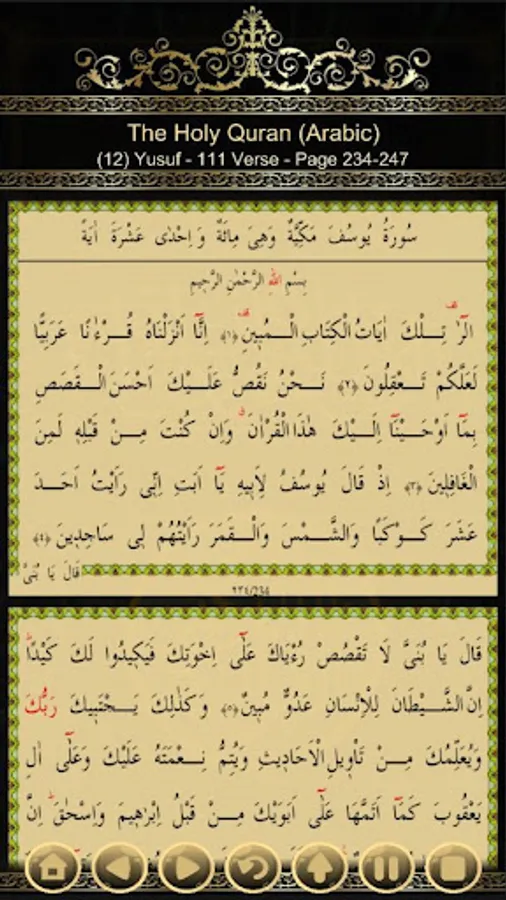 The Holy Quran (Arabic)
(12) Yusuf - 111 Verse - Page 234-247
سُورَةُ يُوسُفَ مَكِّيَّةٌ وَهِىَ مِائَةٌ وَاِحْدٰى عَشْرَةَ اٰيَةً
بِسْمِ اللهِ الرَّحْمٰنِ الرَّحِيمِ
الٓرٰ تِلْكَ اٰيَاتُ الْكِتَابِ الْمُبِينِ ﴿١﴾ اِنَّٓا اَنْزَلْنَاهُ قُرْءٰنًا عَرَبِيًّا
لَعَلَّكُمْ تَعْقِلُونَ ﴿٢﴾ نَحْنُ نَقُصُّ عَلَيْكَ اَحْسَنَ الْقَصَصِ
بِمَٓا اَوْحَيْنَٓا اِلَيْكَ هٰذَا الْقُرْاٰنَ وَاِنْ كُنْتَ مِنْ قَبْلِهِ لَمِنَ
الْغَافِلِينَ ﴿٣﴾ اِذْ قَالَ يُوسُفُ لِاَبِيهِ يَٓا اَبَتِ اِنِّى رَاَيْتُ اَحَدَ
عَشَرَ كَوْكَبًا وَالشَّمْسَ وَالْقَمَرَ رَاَيْتُهُمْ لِى سَاجِدِينَ ﴿٤﴾
قَالَ يَا بُنَىَّ
٢٣٤/234
قَالَ يَا بُنَىَّ لَا تَقْصُصْ رُءْيَاكَ عَلٰٓى اِخْوَتِكَ فَيَكِيدُوا لَكَ كَيْدًا
اِنَّ الشَّيْطَانَ لِلْاِنْسَانِ عَدُوٌّ مُبِينٌ ﴿٥﴾ وَكَذٰلِكَ يَجْتَبِيكَ رَبُّكَ
وَيُعَلِّمُكَ مِنْ تَاْوِيلِ الْاَحَادِيثِ وَيُتِمُّ نِعْمَتَهُ عَلَيْكَ وَعَلٰٓى اٰلِ
يَعْقُوبَ كَمَٓا اَتَمَّهَا عَلٰٓى اَبَوَيْكَ مِنْ قَبْلُ اِبْرٰهِيمَ وَاِسْحٰقَ اِنَّ